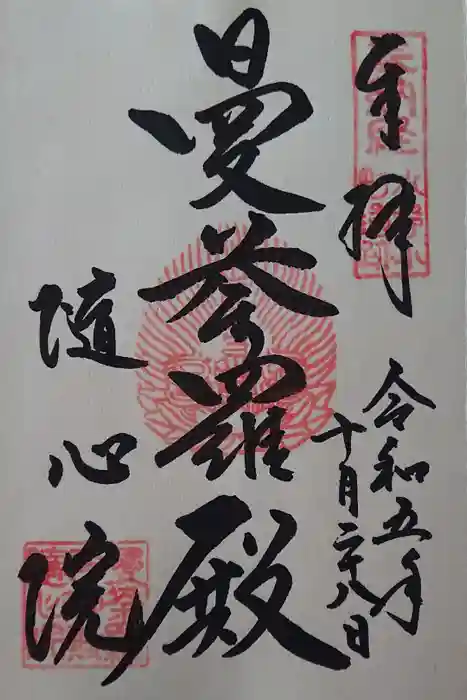 奉拝
令和五年
十月二十八日
曼荼羅殿
随心院